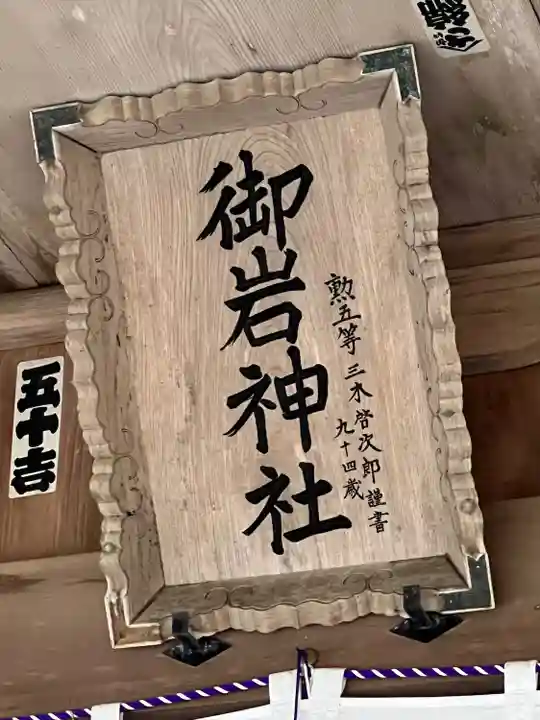 御岩神社
勲五等 三木啓次郎 謹書
九十四歳
五十吉